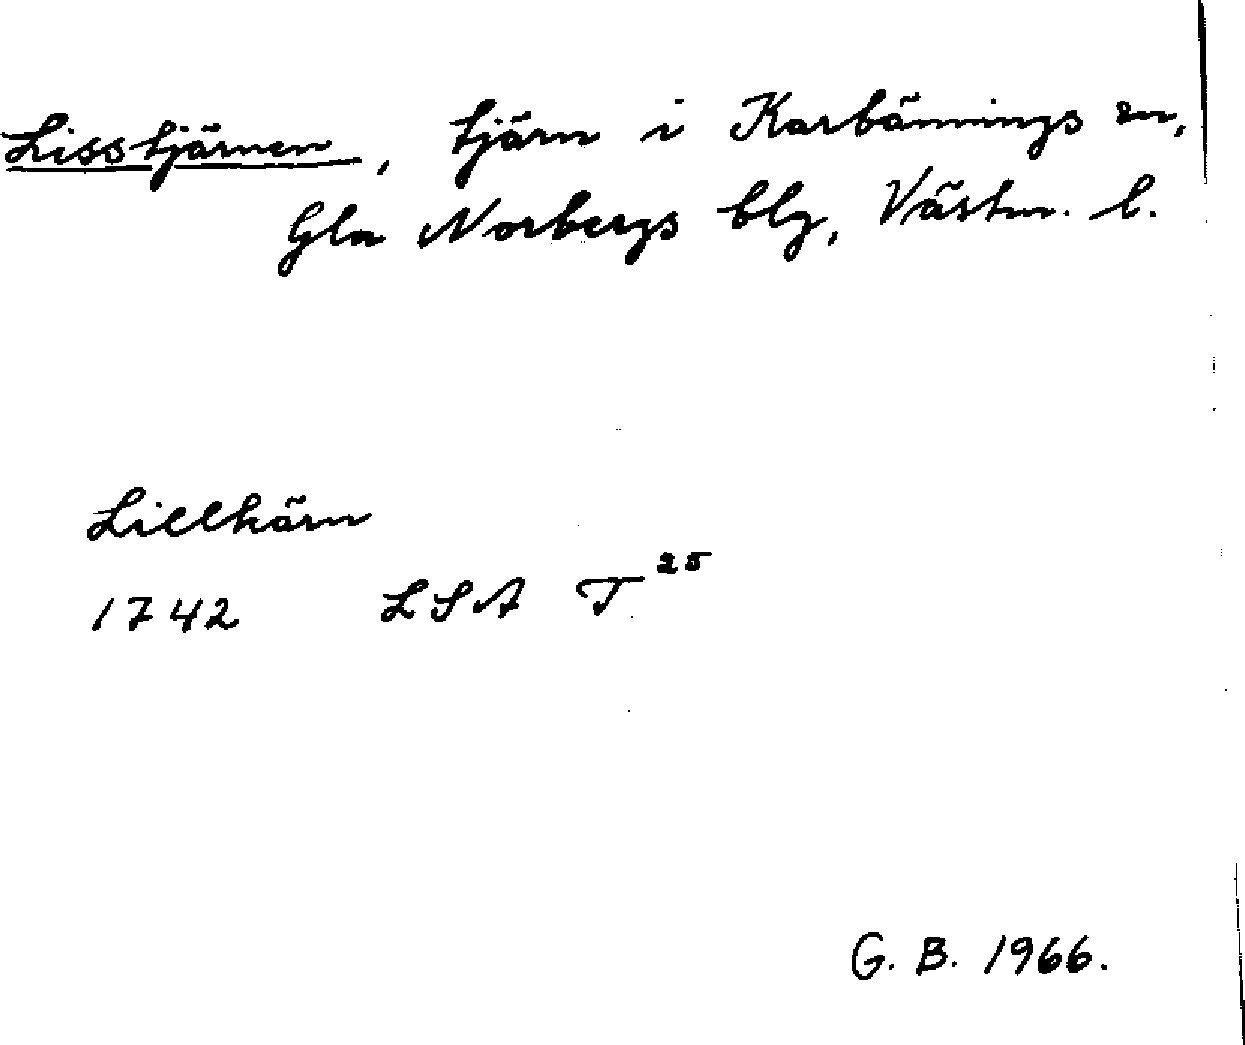 Lisstjärnen, tjärn i Karbännings sn,
Gla Norbergs blg, Västm. l.
Lillkärn
1742 LSA T 25
G. B. 1966.